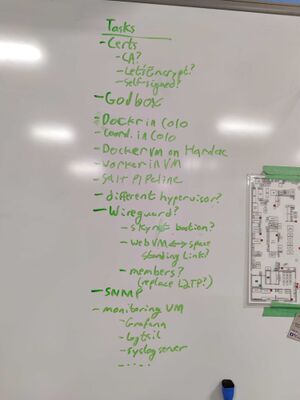 Tasks
- Certs
- CA?
- Let's Encrypt?
- Self-signed?
- Godbox
- Docker in Colo
- Coord. in Colo
- Docker VM on Hardac
- Worker in VM
- Salt Pipeline
- different hypervisor?
- Wireguard?
- skynet bastion?
- web VM <-> space
standing link?
- members?
(replace L2TP?)
- SNMP
- monitoring VM
- Grafana
- logtail
- syslog server
- ....